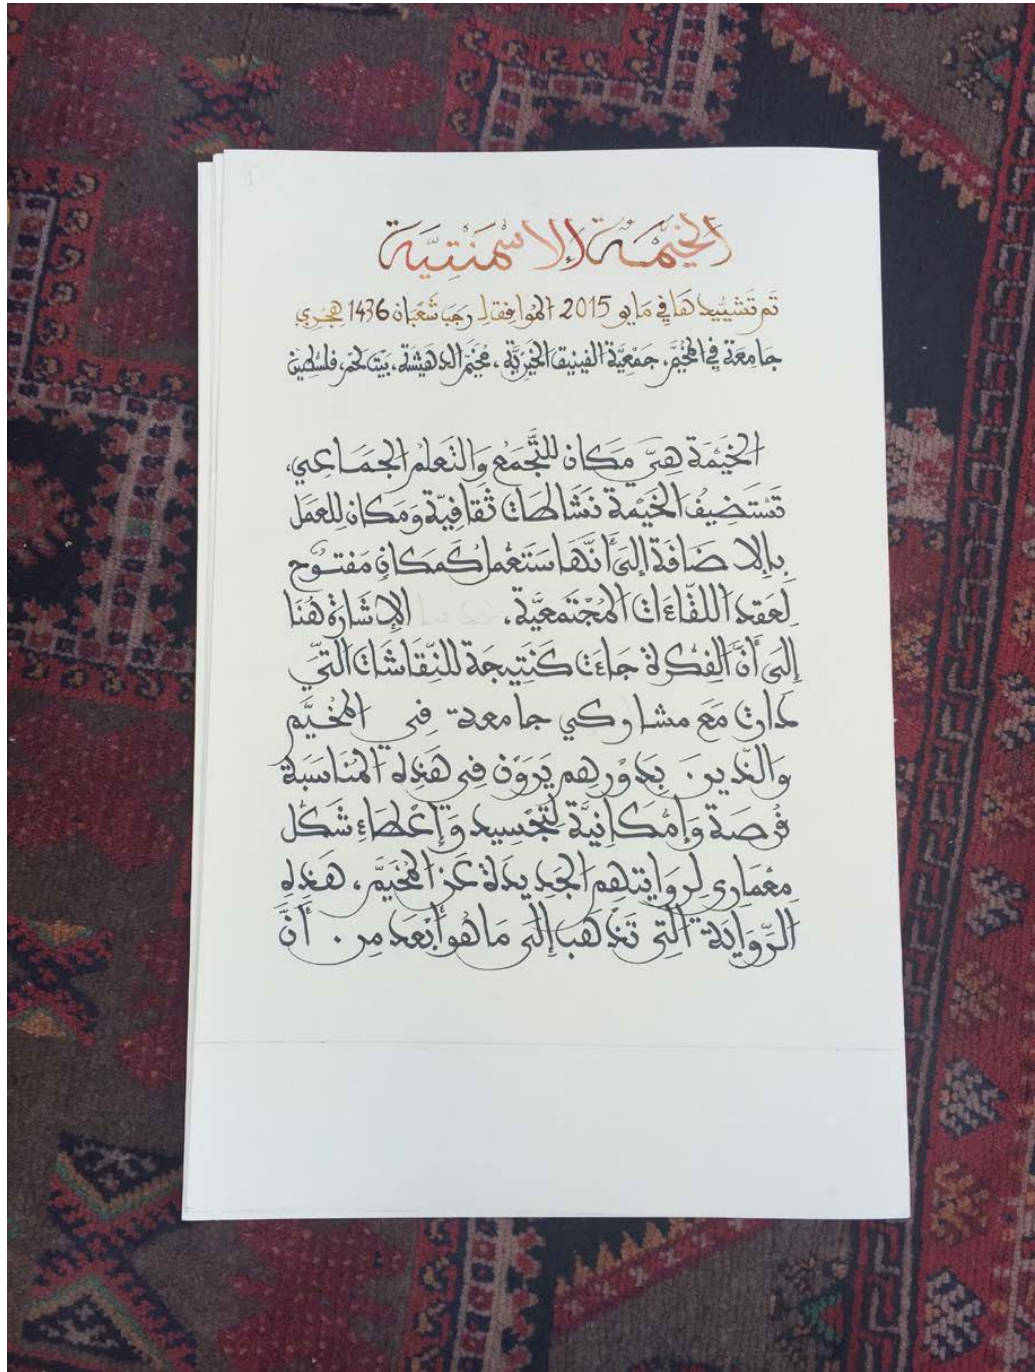 الخَيْمَة الإسْمَنْتِيَّة
تَم تَشْيِيدهَا فِي مَايو 2015 المُوافِق لـ رجَب شَعْبَان 1436 هِجْرِي
جَامِعَة فِي المُخَيَّم، جَمْعِيَّة الفينيق الخَيْرِيَّة، مُخَيَّم الدهَيْشَة، بَيْت لَحْم، فلسْطِين
الخَيْمَة هِيَ مَكَان للتَّجَمُّع وَالتَعَلم الجَمَـاعِي،
تَسْتَضِيفُ الخَيْمَة نَشَاطَات ثَقَافِيَّة وَمَكَان لِلعَمَل
بِالإضَافَة إِلَى أَنَّهَا سَتَعْمل كَمَكَانٍ مَفتـُوح
لِعَقد اللقَاءَات المُجْتَمَعِيَّة، الإشَارَة هُنَا
إِلَى أَنَّ الفِكْرَة جَاءَت كَنَتِيجَة للنِّقَاشَات الَّتِي
دَارت مَعَ مشاركي جامعة فِي المُخَيَّم
وَالَّذين بِدَوْرِهِم يَرَوْن فِي هَذِه المُنَاسَبَة
فُرصَة وَإِمْكَانِيَّة لِتَجْسِيد وَإِعْطَاءِ شَكْل
مِعْمَارِي لِروَايَتهِم الجَدِيدَة عَن المُخَيَّم، هَذِهِ
الرِّوَايَة الَّتِي تَذهَب إِلَى مَا هُو أَبْعَد مِن أَنَّ